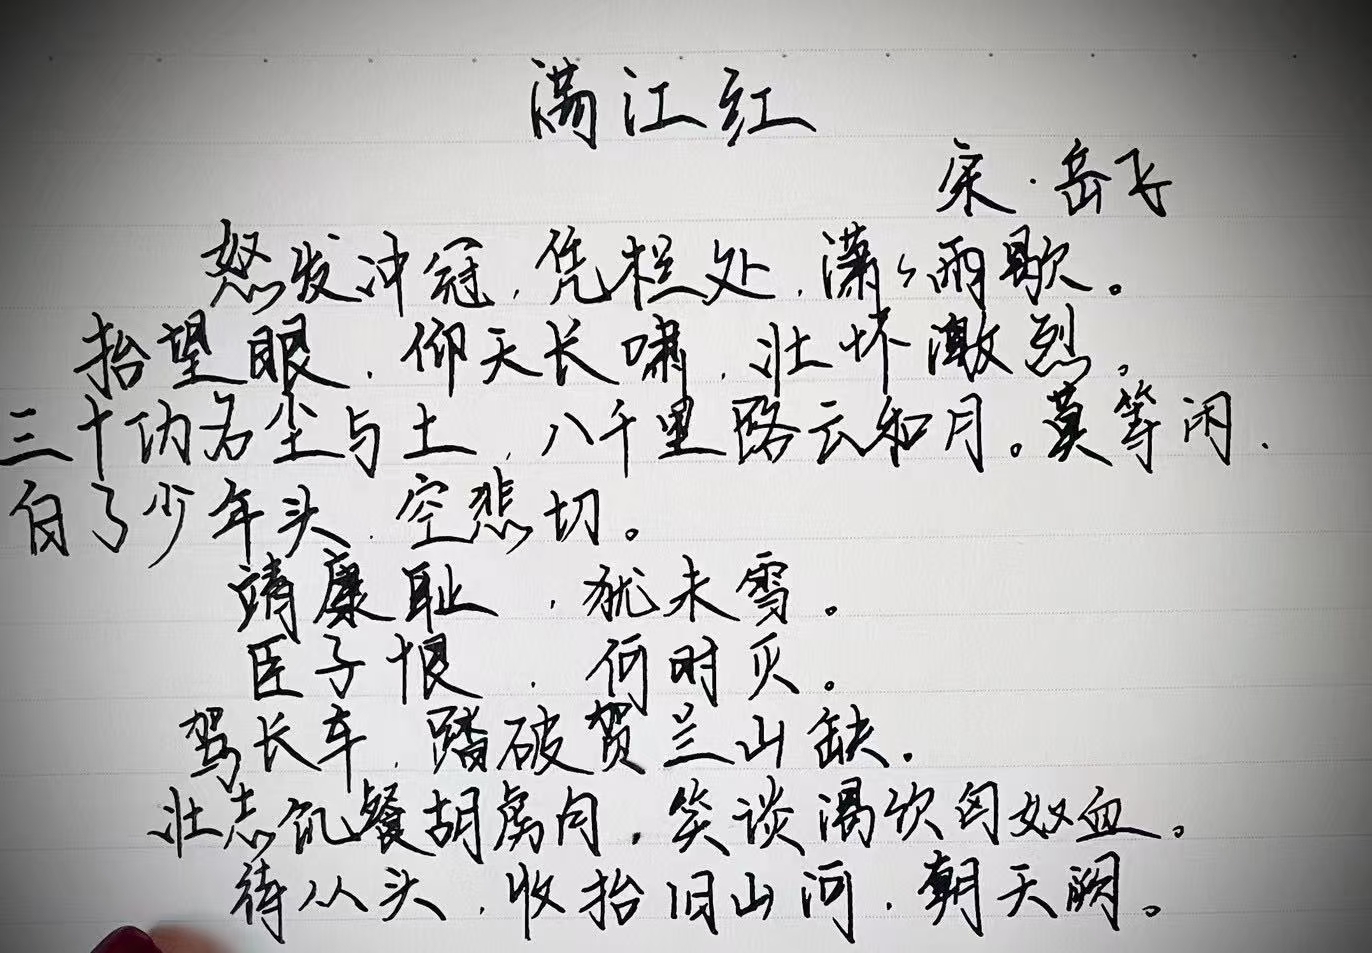 满江红
宋·岳飞
怒发冲冠，凭栏处，潇々雨歇。
抬望眼，仰天长啸，壮怀激烈。
三十功名尘与土，八千里路云和月。莫等闲，
白了少年头，空悲切。
靖康耻，犹未雪。
臣子恨，何时灭。
驾长车，踏破贺兰山缺。
壮志饥餐胡虏肉，笑谈渴饮匈奴血。
待从头，收拾旧山河，朝天阙。